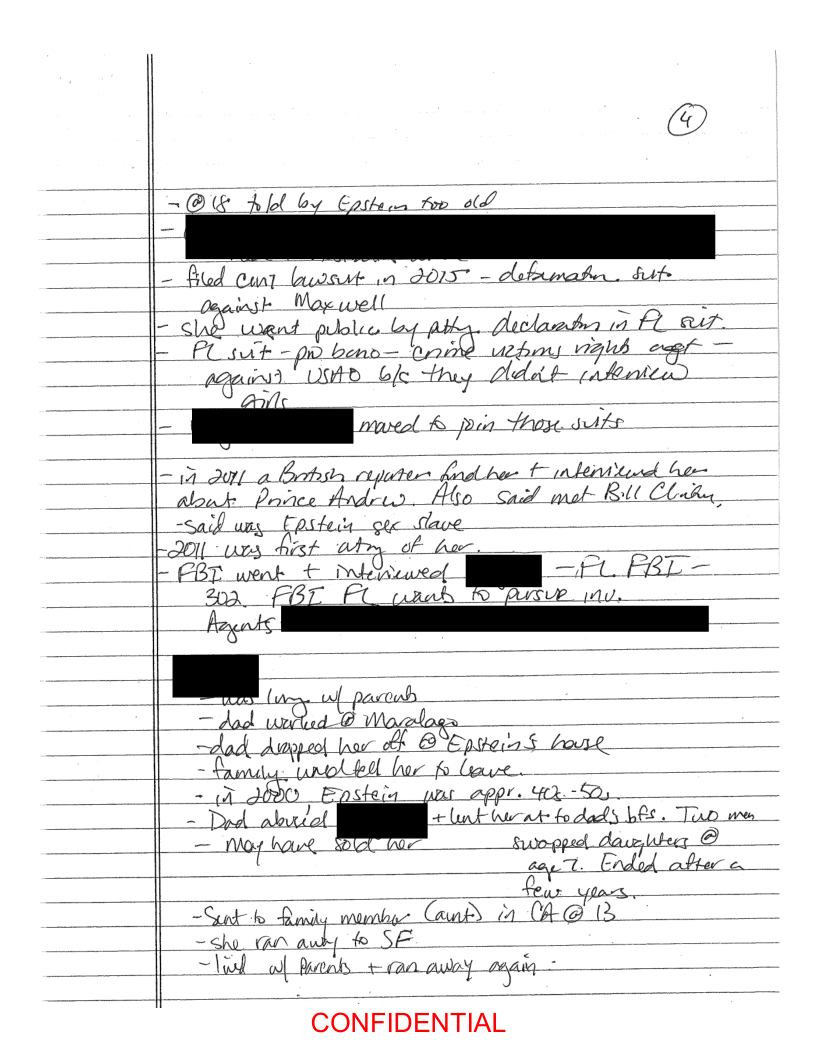 4
- @ 18 told by Epstein too old
-
- filed civil lawsuit in 2015 - defamatn suit
against Maxwell
- she went public by atty declaratn in FL suit.
- FL suit - pro bono - crime victims rights -
against USAO b/c they didn't interview
girls
- moved to join those suits
- in 2011 a British reporter find her + interviewed her
about Prince Andrew. Also said met Bill Clinton.
- said was Epstein sex slave
- 2011 was first of her.
- FBI went + interviewed - FL FBI -
302. FBI FL wants to pursue inv.
Agents
- was living w/ parents
- dad worked @ Maralago
- dad dropped her off @ Epstein's house
- family tell her to leave.
- in 2000, Epstein was appr. 40s-50s.
- Dad abused + lent her out to dad's bfs. Two men
- May have sold her swapped daughters @
age 7. Ended after a
few years.
- Sent to family member (aunt) in CA @ 13
- she ran away to SF
- lived w/ parents + ran away again -
CONFIDENTIAL